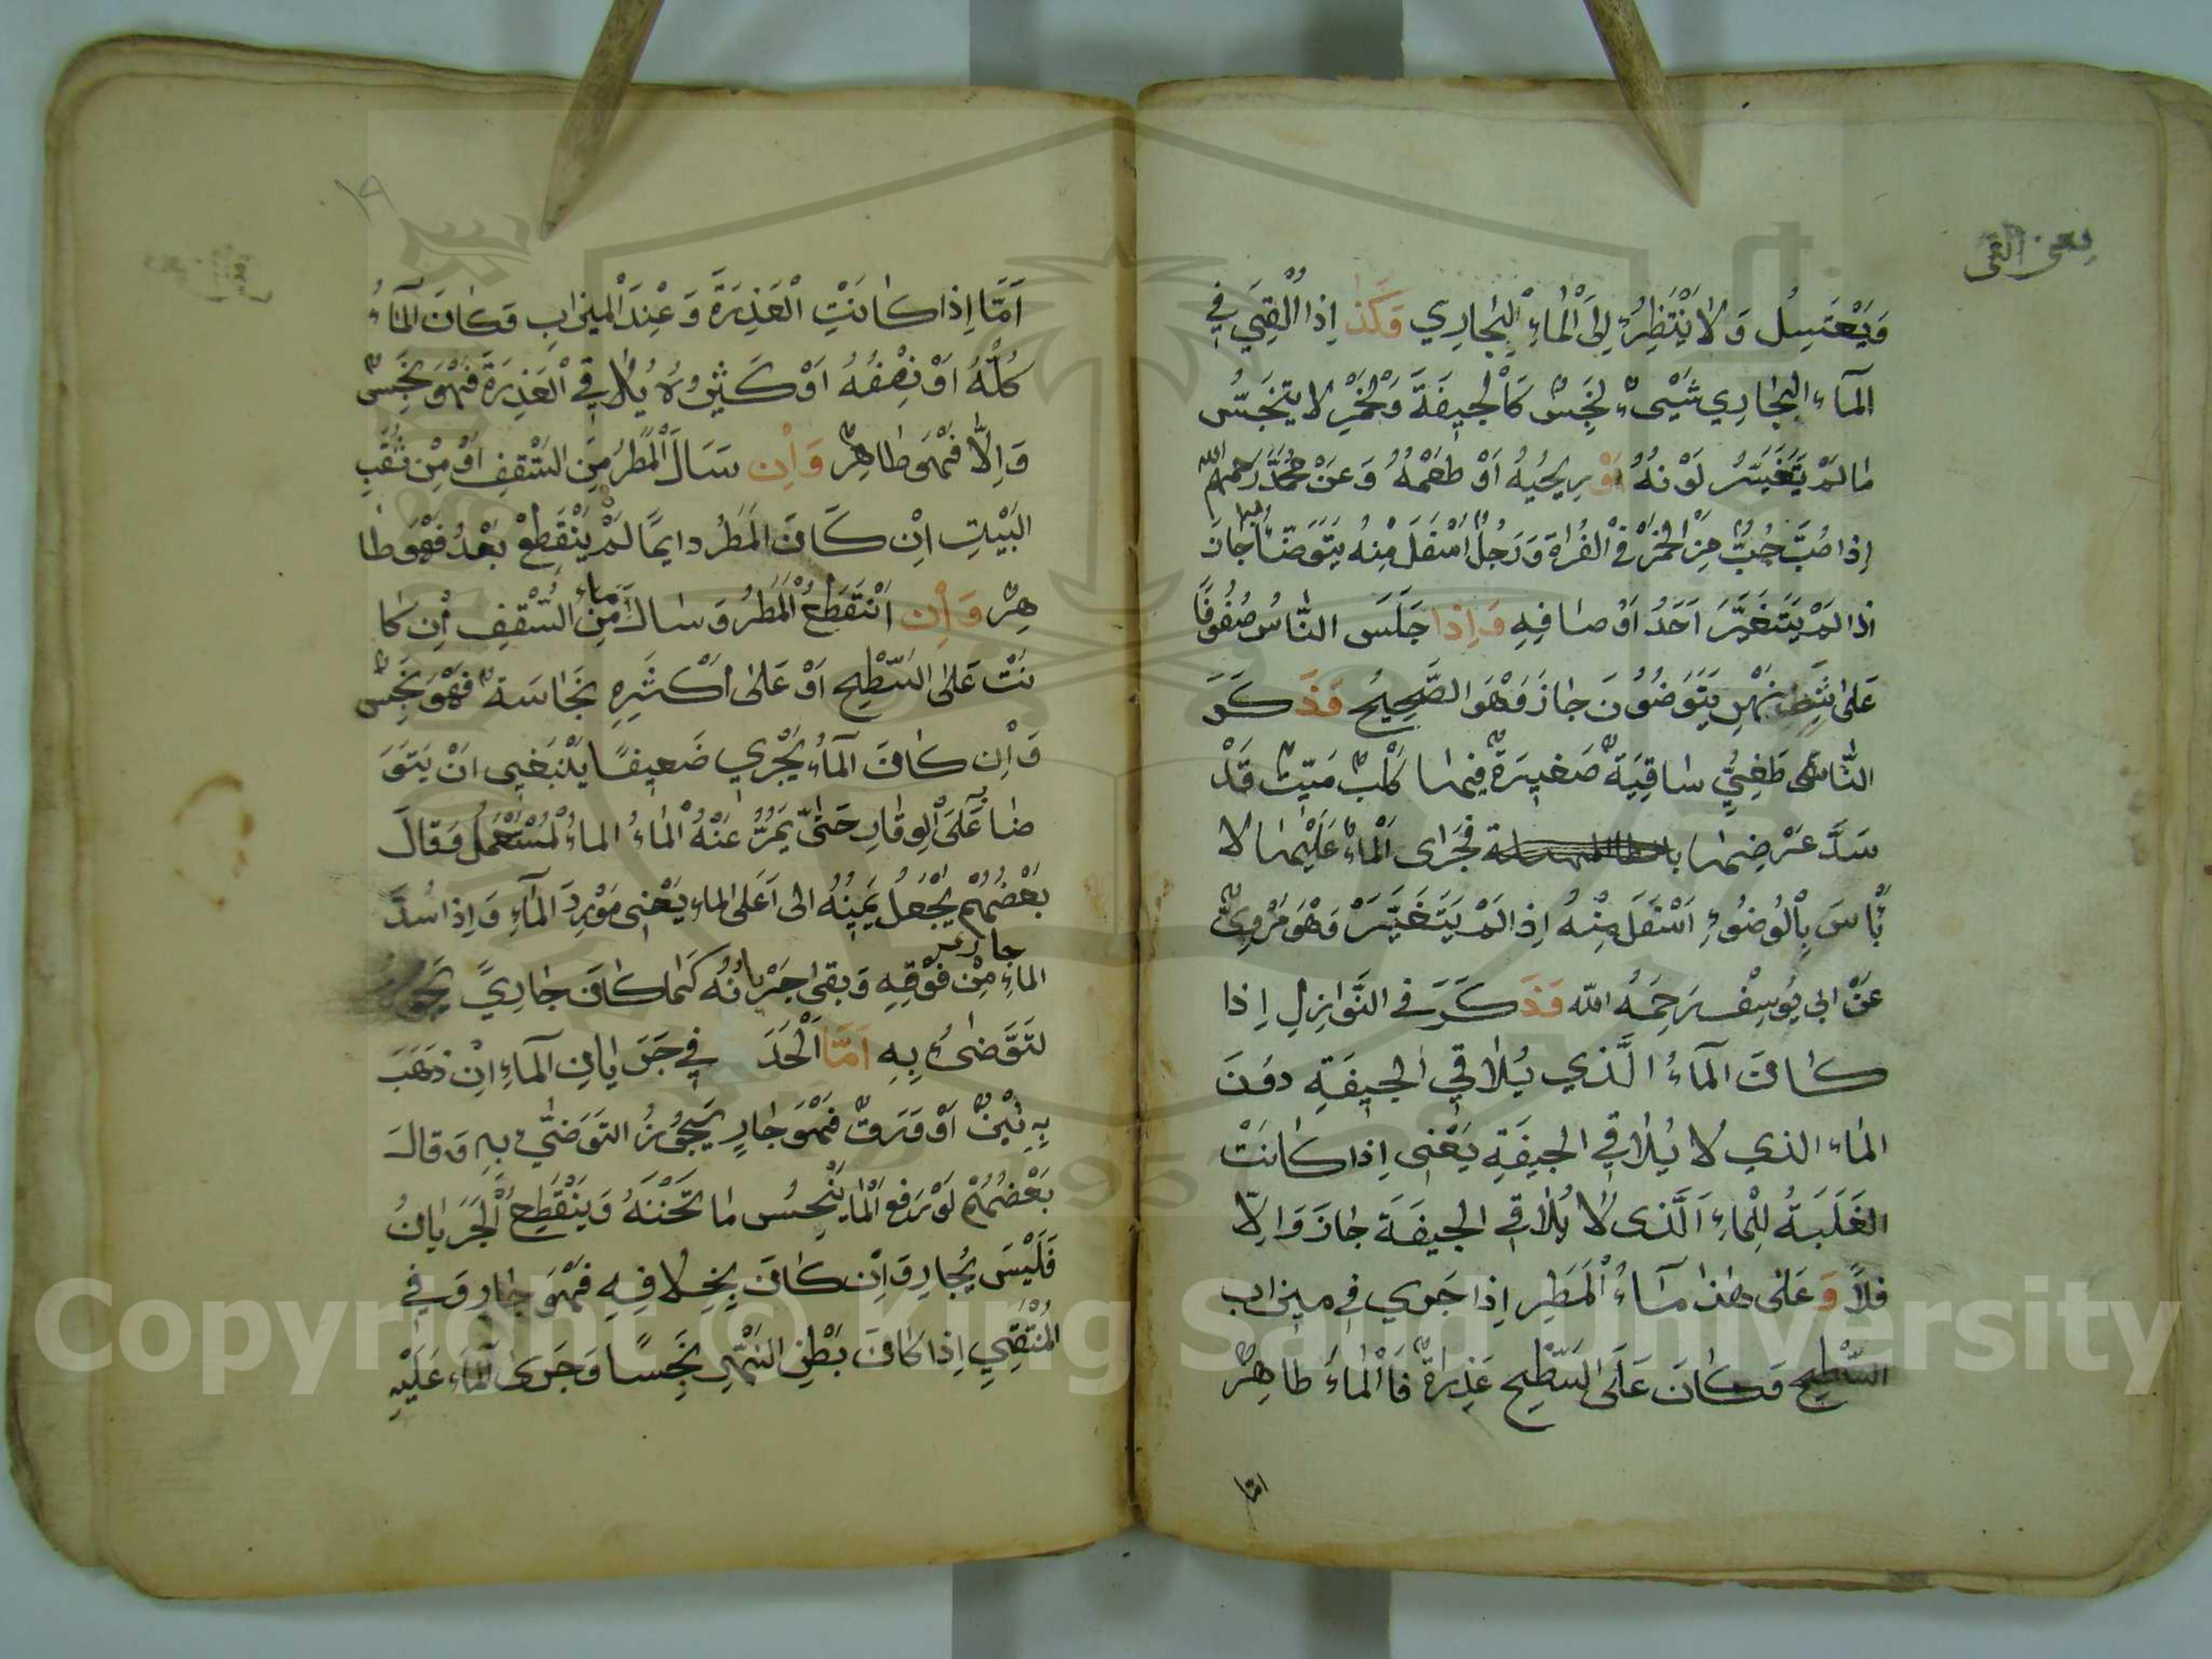 يعني القى
وَيَغْتَسِلُ وَلَا يَنْتَظِرُ اِلَى الْمَاءِ الْجَارِي وَكَذَا اِذَا اُلْقِيَ فِي
المآء الجَارِي شَيْىءٌ نَجَسٌ كَالْجِيفَةَ وَالْخَمْرِ لا يتنَجَسُّ
مَا لَمْ يَتَغَيَّرُ لَوْنُهُ اَوْ رِيحُهُ اَوْ طَعْمُهُ وَعَنْ مُحَمَّدٍ رَحِمَهُ الله
إِذا صُبَّ حُبٌّ مِنَ الْخَمْرِ فِي الْفُرَاةِ وَرَجُلٌ اَسْفَلَ مِنْهُ يَتَوَضَّأُ جَازَ
اذا لَمْ يَتَغَيَّرَ اَحَدُ اَوْصَافِهِ وَاِذا جَلَسَ النَّاسُ صُفُوفًا
عَلى شَطِّ نَهْرٍ يَتَوَضَّوُنَ جَازَ وَهْوَ الصَّحِيحُ وَذَكَرَ
النَّاطِفِيُّ سَاقِيَةٌ صَغِيرَةٌ فِيهَا كَلْبٌ مَيِّتٌ قَدْ
سَدَّ عَرْضِهَا فَجَرَى الْمَاءُ عَلَيْهَا لا
بَأْسَ بِالْوُضُوءِ اَسْفَلَ مِنْهُ اِذَا لَمْ يَتَغَيَّرْ وَهْوَ مَرْوِىٌّ
عَنْ ابى يُوسِفْ رَحِمَهُ الله وَذَكَرَ فى النَّوَازِلِ إِذا
كَانَ المآءُ الَّذي يُلاقِي الجِيفَةِ دوُنَ
المَاء الذي لا يُلَاقِي الجِيفَةِ يَعْنِى اِذَا كَانَتْ
الغَلَبَةُ لِلْمَاءِ اَلَّذى لَا يُلَاقِي الجِيفَةَ جَازَ وَاِلّا
فلَا وَعَلى هٰذا مَآءُ الْمَطَرِ اِذَا جَرى فِي مِيزَاب
السَّطْحِ وَكَانَ عَلَى السَّطْحِ عَذِرَةٌ فَالْمَاءُ طَاهِرٌ
امّا
١٩
اَمَّا اِذا كَانَتِ الْعَذِرَةُ وَعِنْدَ الْمِيزَابِ وَكَانَ المآءُ
كُلُّهُ اَوْ نِصْفُهُ اَوْ كَثِيرُهُ يُلَاقِي الْعَذِرَةَ فَهْوَ نَجِسٌ
وَاِلَّا فَهْوَ طَاهِرٌ وَاِن سَالَ الْمَطَرُ مِنَ السَّقْفِ اَوْ مِنْ ثُقْبِ
البَيْتِ اِنْ كَانَ المَطَرُ دايمًا لَمْ يَنْقَطِعْ بَعْدُ فَهْوَ طَا
هِرٌ وَاِن اَنْقَطَعُ الْمَطَرُ وَسَالَ مَاء مِنَ السَّقْفِ اِن كَا
نَتْ عَلى السَّطْحِ اَوْ عَلى اَكْثَرِهِ نَجَاسَةٌ فَهْوَ نَجِسٌ
وَاِن كَانَ المآءُ يَجْرِي ضَعِيفًا يَنْبَغِي اَنْ يَتَوَ
ضَأ عَلَى الْوِقَارِ حَتىّ يَمُرَّ عَنْهُ الْمَاءُ الماءُ الْمُسْتَعْمَلُ وَقَالَ
بَعْضُهُمْ يَجْعَلُ يَمِينَهُ الى اَعَلى الماءِ يَعْنى مَوْرِدَ المآءِ وَاِذا سُدَّ
الماءِ مِنْ فَوْقِهِ وَبقى جَرْيَانُهُ كَمَا كَانَ جَارِيً يَجُوزُ
لتَوَّضىُ بِهِ اَمَّا الْحَدَ فِي جَرَيَانِ المآءِ اِنْ ذَهَبَ
بِهِ تِبْنٌ اَوْ وَرَقٌ فَهْوَ جَارٍ يَجُوزُ التَوَضّي بِهِ وَقالَ
بَعْضُهُمْ لَوْ رَفَع الْمَا يَنْحِسُ مَا تَحْتَهُ وَيَنْقَطِعُ الْجَرَيَانُ
فَلَيْسَ بِجَارِ وَاِن كَانَ بِخِلافِهِ فَهْوَ جَارٍ وَفي
المُنْتَقَى اِذَا كَانَ بَطْنِ النَهْرِ نَجِسًا وَجَرى المآءَ عَلَيْهِ
Copyright © King Saud University